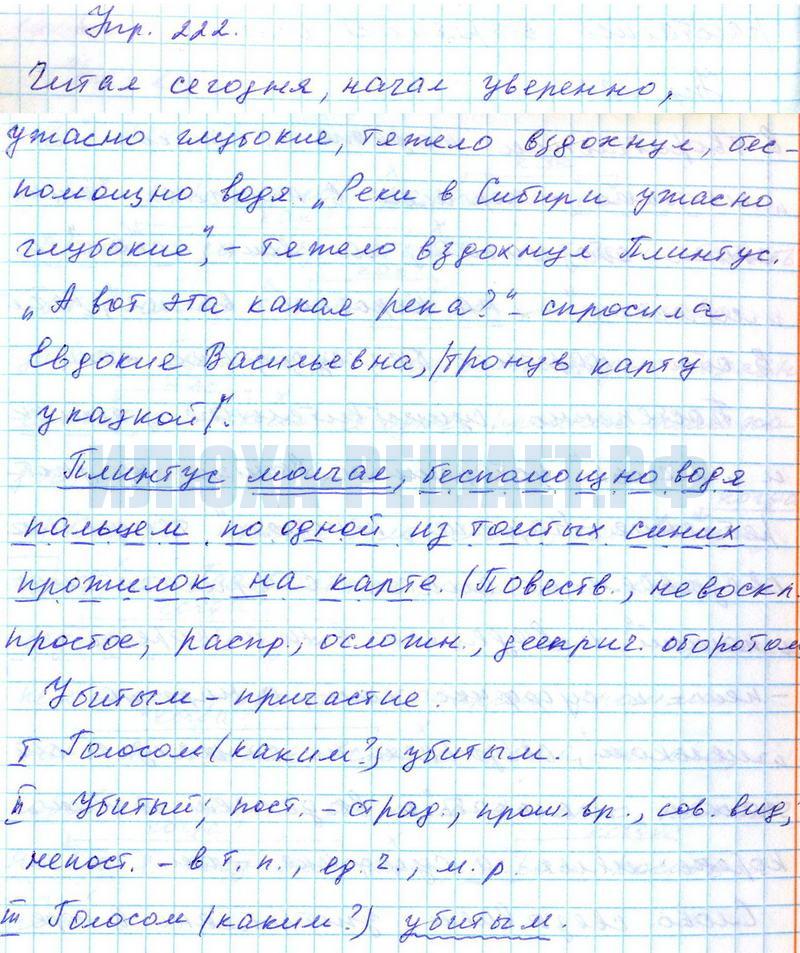 Упр. 222.
Читал сегодня, начал уверенно,
ужасно глубокие, тяжело вздохнул, бес-
помощно водя. „Реки в Сибири ужасно
глубокие", – тяжело вздохнул Плинтус.
„А вот эта какая река?" – спросила
Евдокия Васильевна, /тронув карту
указкой/".
ИЛЮХА-РЕШАЕТ.РФ
Плинтус молчал, беспомощно водя
пальцем по одной из толстых синих
прожилок на карте. (Повеств., невоскл.
простое, распр., осложн., дееприч. оборотом
Убитым – причастие.
I Голосом (каким?) убитым.
II Убитый; пост. – страд., прош. вр., сов. вид,
непост. – в т. п., ед. ч., м. р.
III Голосом (каким?) убитым.